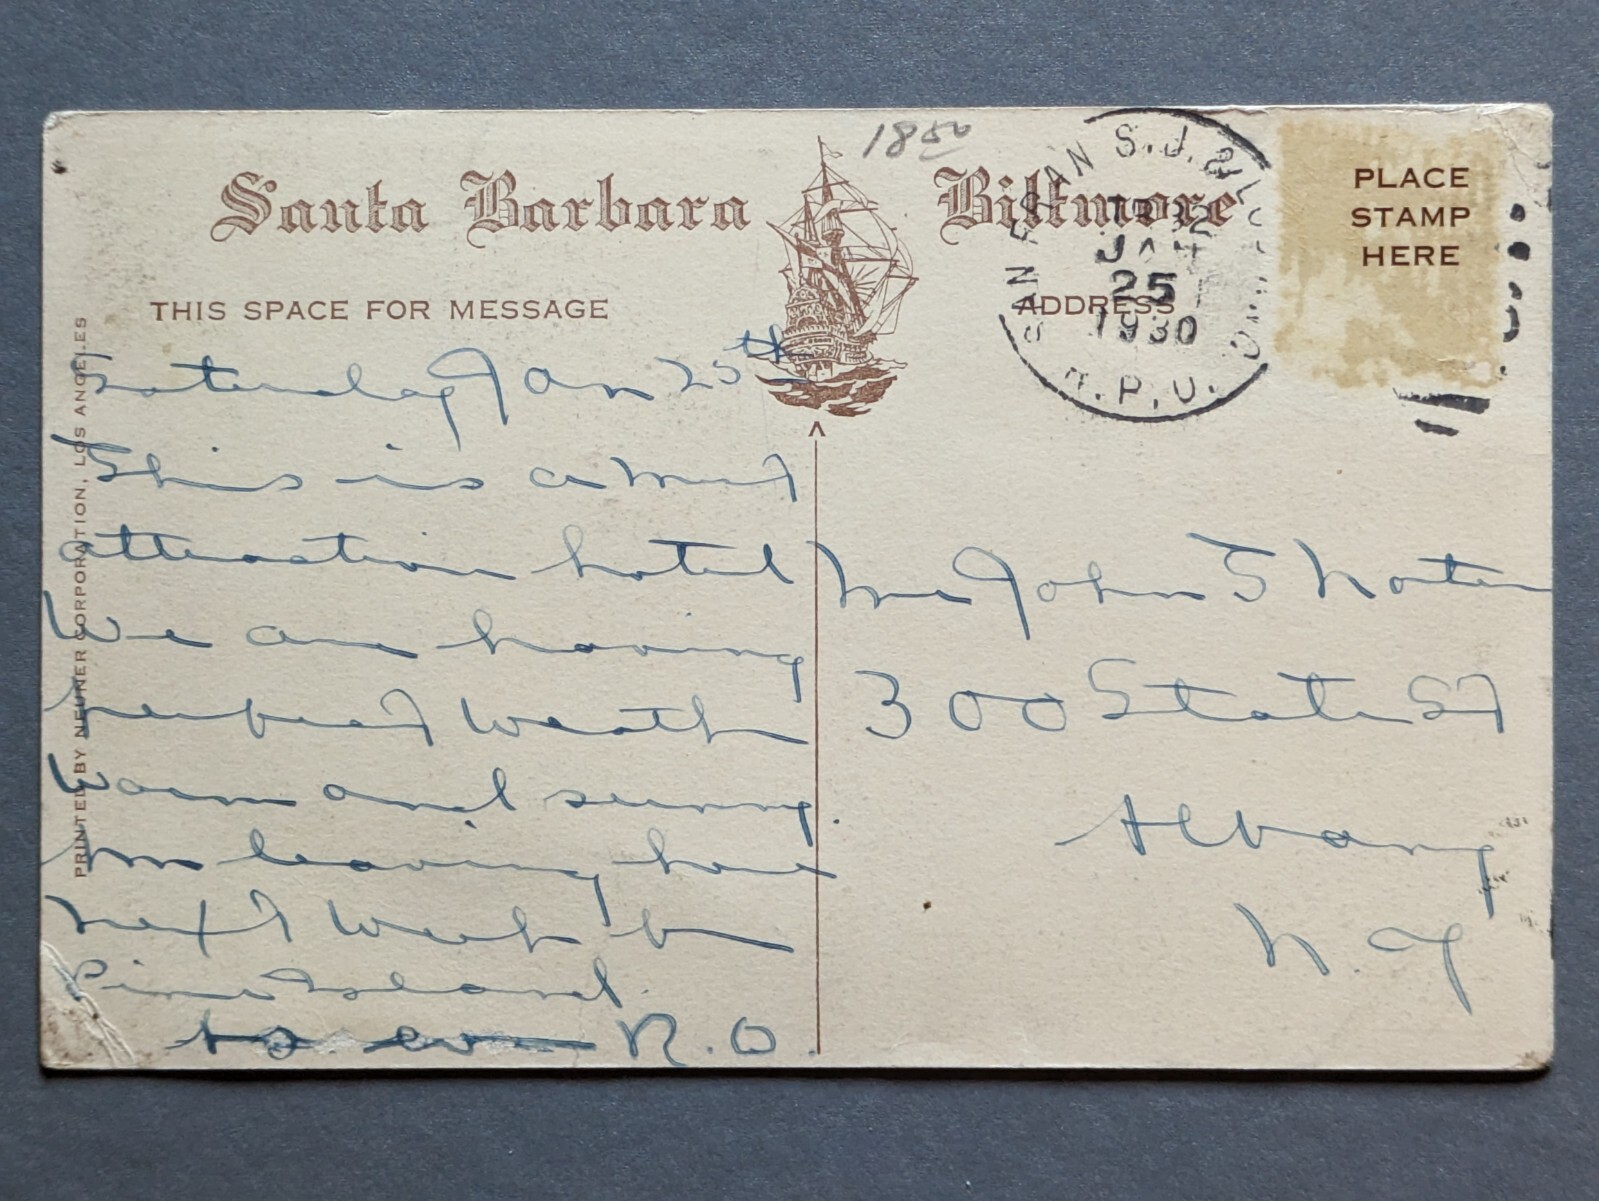 1850
Santa Barbara Biltmore
PLACE
STAMP
HERE
SAN FRAN S.J. & LOS
JAN
25
1930
R.P.O.
THIS SPACE FOR MESSAGE
ADDRESS
PRINTED BY NEUNER CORPORATION, LOS ANGELES
Saturday Jan 25th
This is a most
attractive hotel
We are having
perfect weather
warm and sunny.
Im leaving here
next week for
Pine Island.
R. O.
Mr John T Norton
300 State St
Albany
N. Y